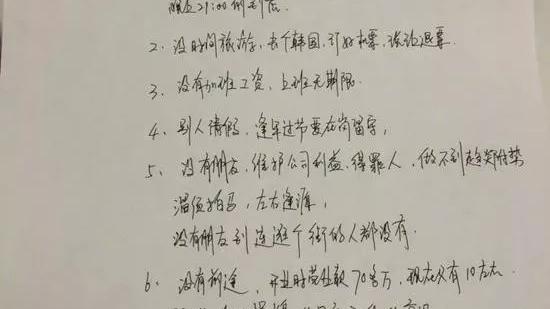 2、没时间旅游，去个韩国，订好机票，被迫退票.
3、没有加班工资，上班无期限.
4、别人请假，逢年过节要在岗留守，
5、没有朋友，维护公司利益，得罪人，做不到趋炎附势
溜须拍马，左右逢源，
没有朋友到连逛个街的人都没有.
6、没有前途，开业时营业额70多万，现在只有10左右.